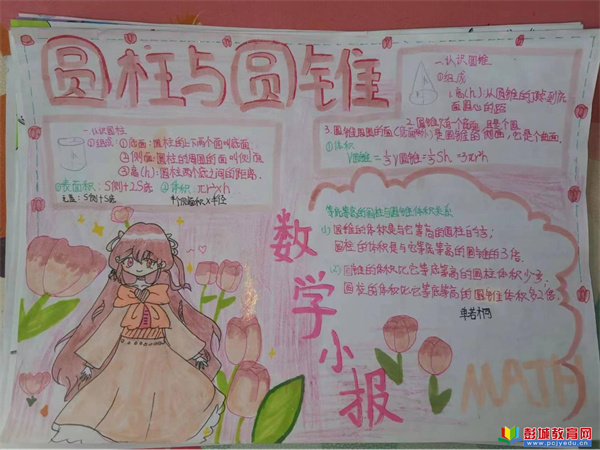 圆柱与圆锥
一.认识圆锥
①组成
1.高(h):从圆锥的顶点到底
面圆心的距
2.圆锥只有一个底面,且是个圆
3.圆锥周围的面(底面除外)是圆锥的侧面,它是个曲面.
①体积
V圆锥=⅓V圆锥=⅓Sh=⅓πr²h
一.认识圆柱
①组成:①底面:圆柱的上下两个面叫底面.
②侧面:圆柱的周围的面叫侧面
③高(h):圆柱两个底之间的距离.
①表面积:S侧+2S底 ②体积:πr²×h
无盖:S侧+S底
半个侧面积×半径
等底等高的圆柱与圆锥体积关系
(1)圆锥的体积是与它等底等高的圆柱的⅓;
圆柱的体积是与它等底等高的圆锥的3倍.
(2)圆锥的体积比它等底等高的圆柱体积少⅔,
圆柱的体积比它等底等高的圆锥体积多2倍.
数学小报
MATH
彭城教育网
www.pcjyedu.cn